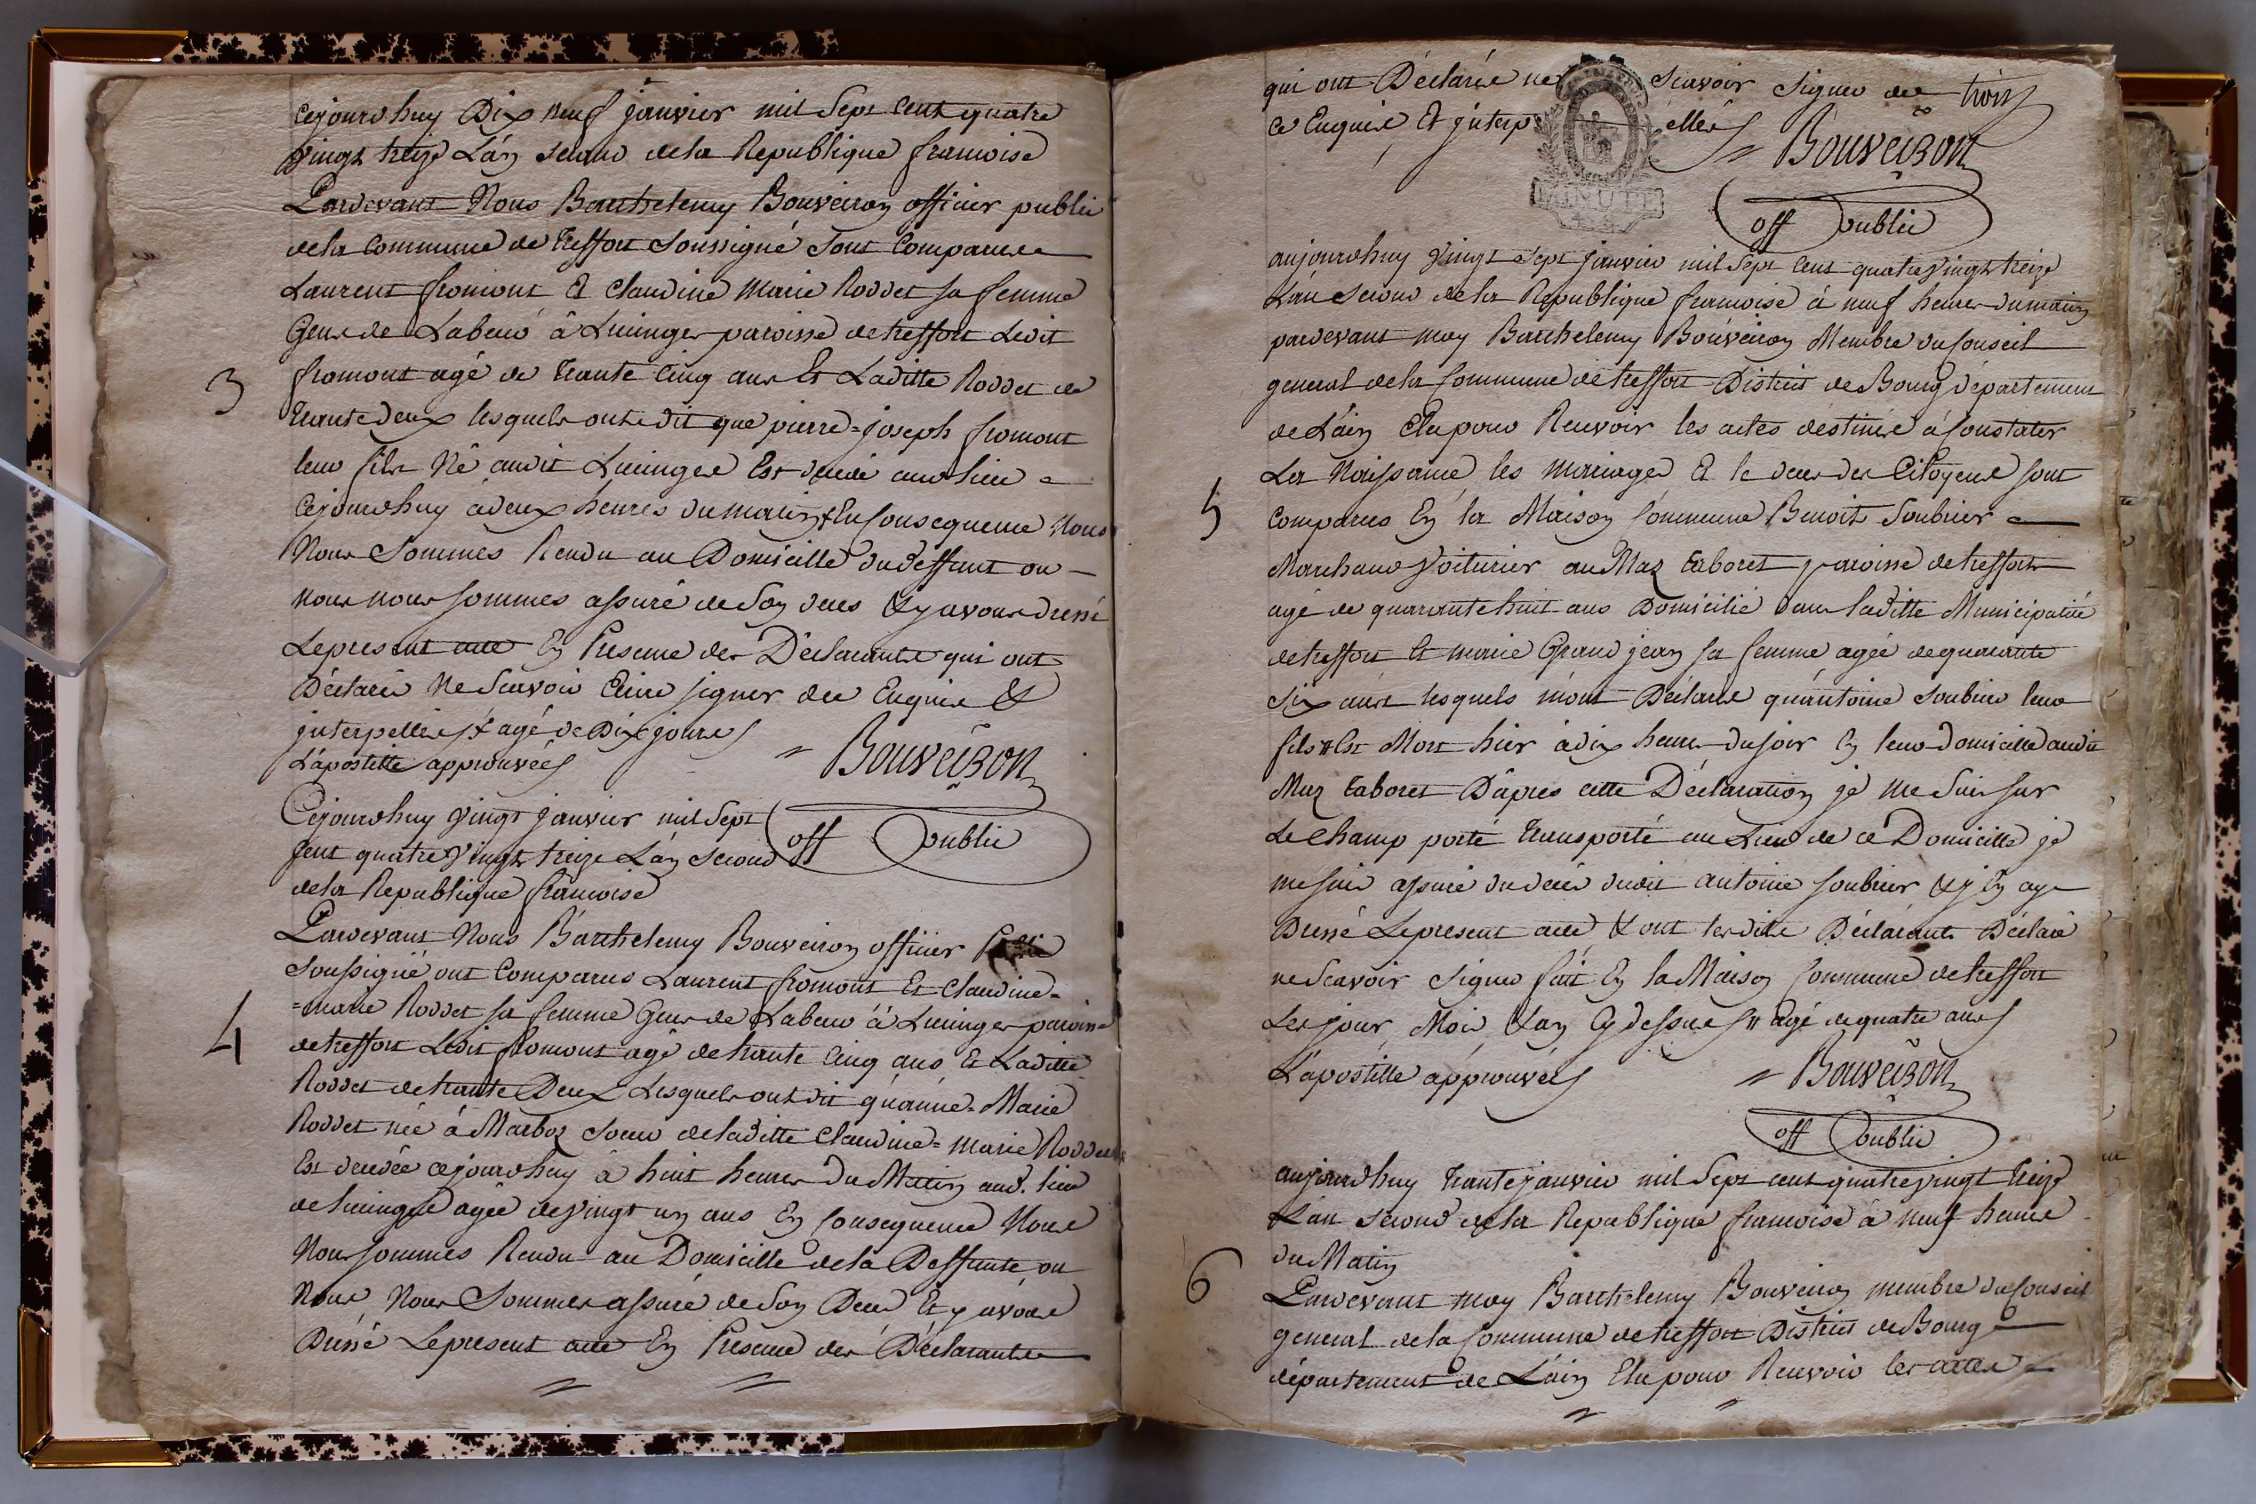 Cejourdhuy Dix neuf janvier mil Sept Cent quatre
vingt treize L'an second dela Republique francoise
Pardevant Nous Barthelemy Bouveiron officier public
dela Commune de treffort Soussigné Sont Comparus
Laurent fromont Et Claudine Marie Roddet sa femme
Gens de Labeur à Lucinges paroisse de treffort Ledit
3
fromont agé de trante cinq ans Et Laditte Roddet de
trante deux lesquels ont dit que pierre=joseph fromont
leur fils Né audit Lucinges Est decedé aud lieu
Cejourdhuy à deux heures du matin + En Consequence Nous
Nous Sommes Rendu au Domicille du deffunt ou
nous nous sommes assuré de Son deces & y avons dressé
Lepresent acte En Presence des Déclarants qui ont
Déclaré Ne Scavoir Ecrire signer de ce Enquis &
interpellés + agé de Dix jours
L'apostille approuvée
Bouveiron
off public
Cejourdhuy vingt janvier mil Sept
Cent quatre vingt treize L'an second
dela Republique francoise
Pardevant Nous Barthelemy Bouveiron officier
soussigné ont Comparus Laurent fromont Et Claudine=
4
=marie Roddet sa femme Gens de Labeur à Lucinges paroisse
de treffort Ledit fromont agé de trante cinq ans Et Laditte
Roddet de trante Deux Lesquels ont dit qu'anne=Marie
Roddet née à Marboz soeur de laditte Claudine=marie Roddet
Est decedée cejourdhuy à huit heures Du Matin aud. lieu
de Lucinges agée de vingt un ans En Consequence Nous
Nous sommes Rendu au Domicille dela Deffunte ou
Nous Nous Sommes assuré de Son Deces Et y avons
Dressé Lepresent acte En Presence des Déclarants
qui ont Déclaré ne Scavoir Signer de
trois
ce Enquis Et jnterpellés
Bouveiron
MINUTE
off public
aujourdhuy vingt Sept janvier mil Sept Cent quatre vingt treize
L'an Second dela Republique francoise à neuf heures du matin
pardevant moy Barthelemy Bouveiron Membre du Conseil
general dela Commune de treffort District de Bourg département
de L'ain Elu pour Recevoir les actes déstinés à Constater
La Naissance les mariages Et le deces des Citoyens sont
5
Comparus En la Maison Commune Benoit Soubrier
Marchand Voiturier au Maz taboret paroisse de treffort
agé de quarante huit ans Domicilié dans laditte Municipalité
de treffort Et marie Grand jean sa femme agée de quarante
six ans lesquels m'ont Déclaré qu'antoine Soubrier leur
fils # Est Mort hier à dix heures du soir En leur domicille audit
Maz taboret D'apres cette Déclaration je me Suis sur
Le champ porté transporté au Lieu de ce Domicille je
me suis assuré du deces dudit antoine soubrier & j'En ay
Dressé Lepresent acte & ont lesdits Déclarants Déclaré
ne Scavoir Signer fait En la Maison Commune de treffort
Les jour Mois & an Cy dessus # agé de quatre ans
L'apostille approuvée
Bouveiron
off public
aujourdhuy trante janvier mil Sept cent quatre vingt treize
L'an second dela Republique francoise à neuf heures
du Matin
6
Pardevant moy Barthelemy Bouveiron membre du Conseil
general dela Commune de treffort District de Bourg
département de L'ain Elu pour Recevoir les actes